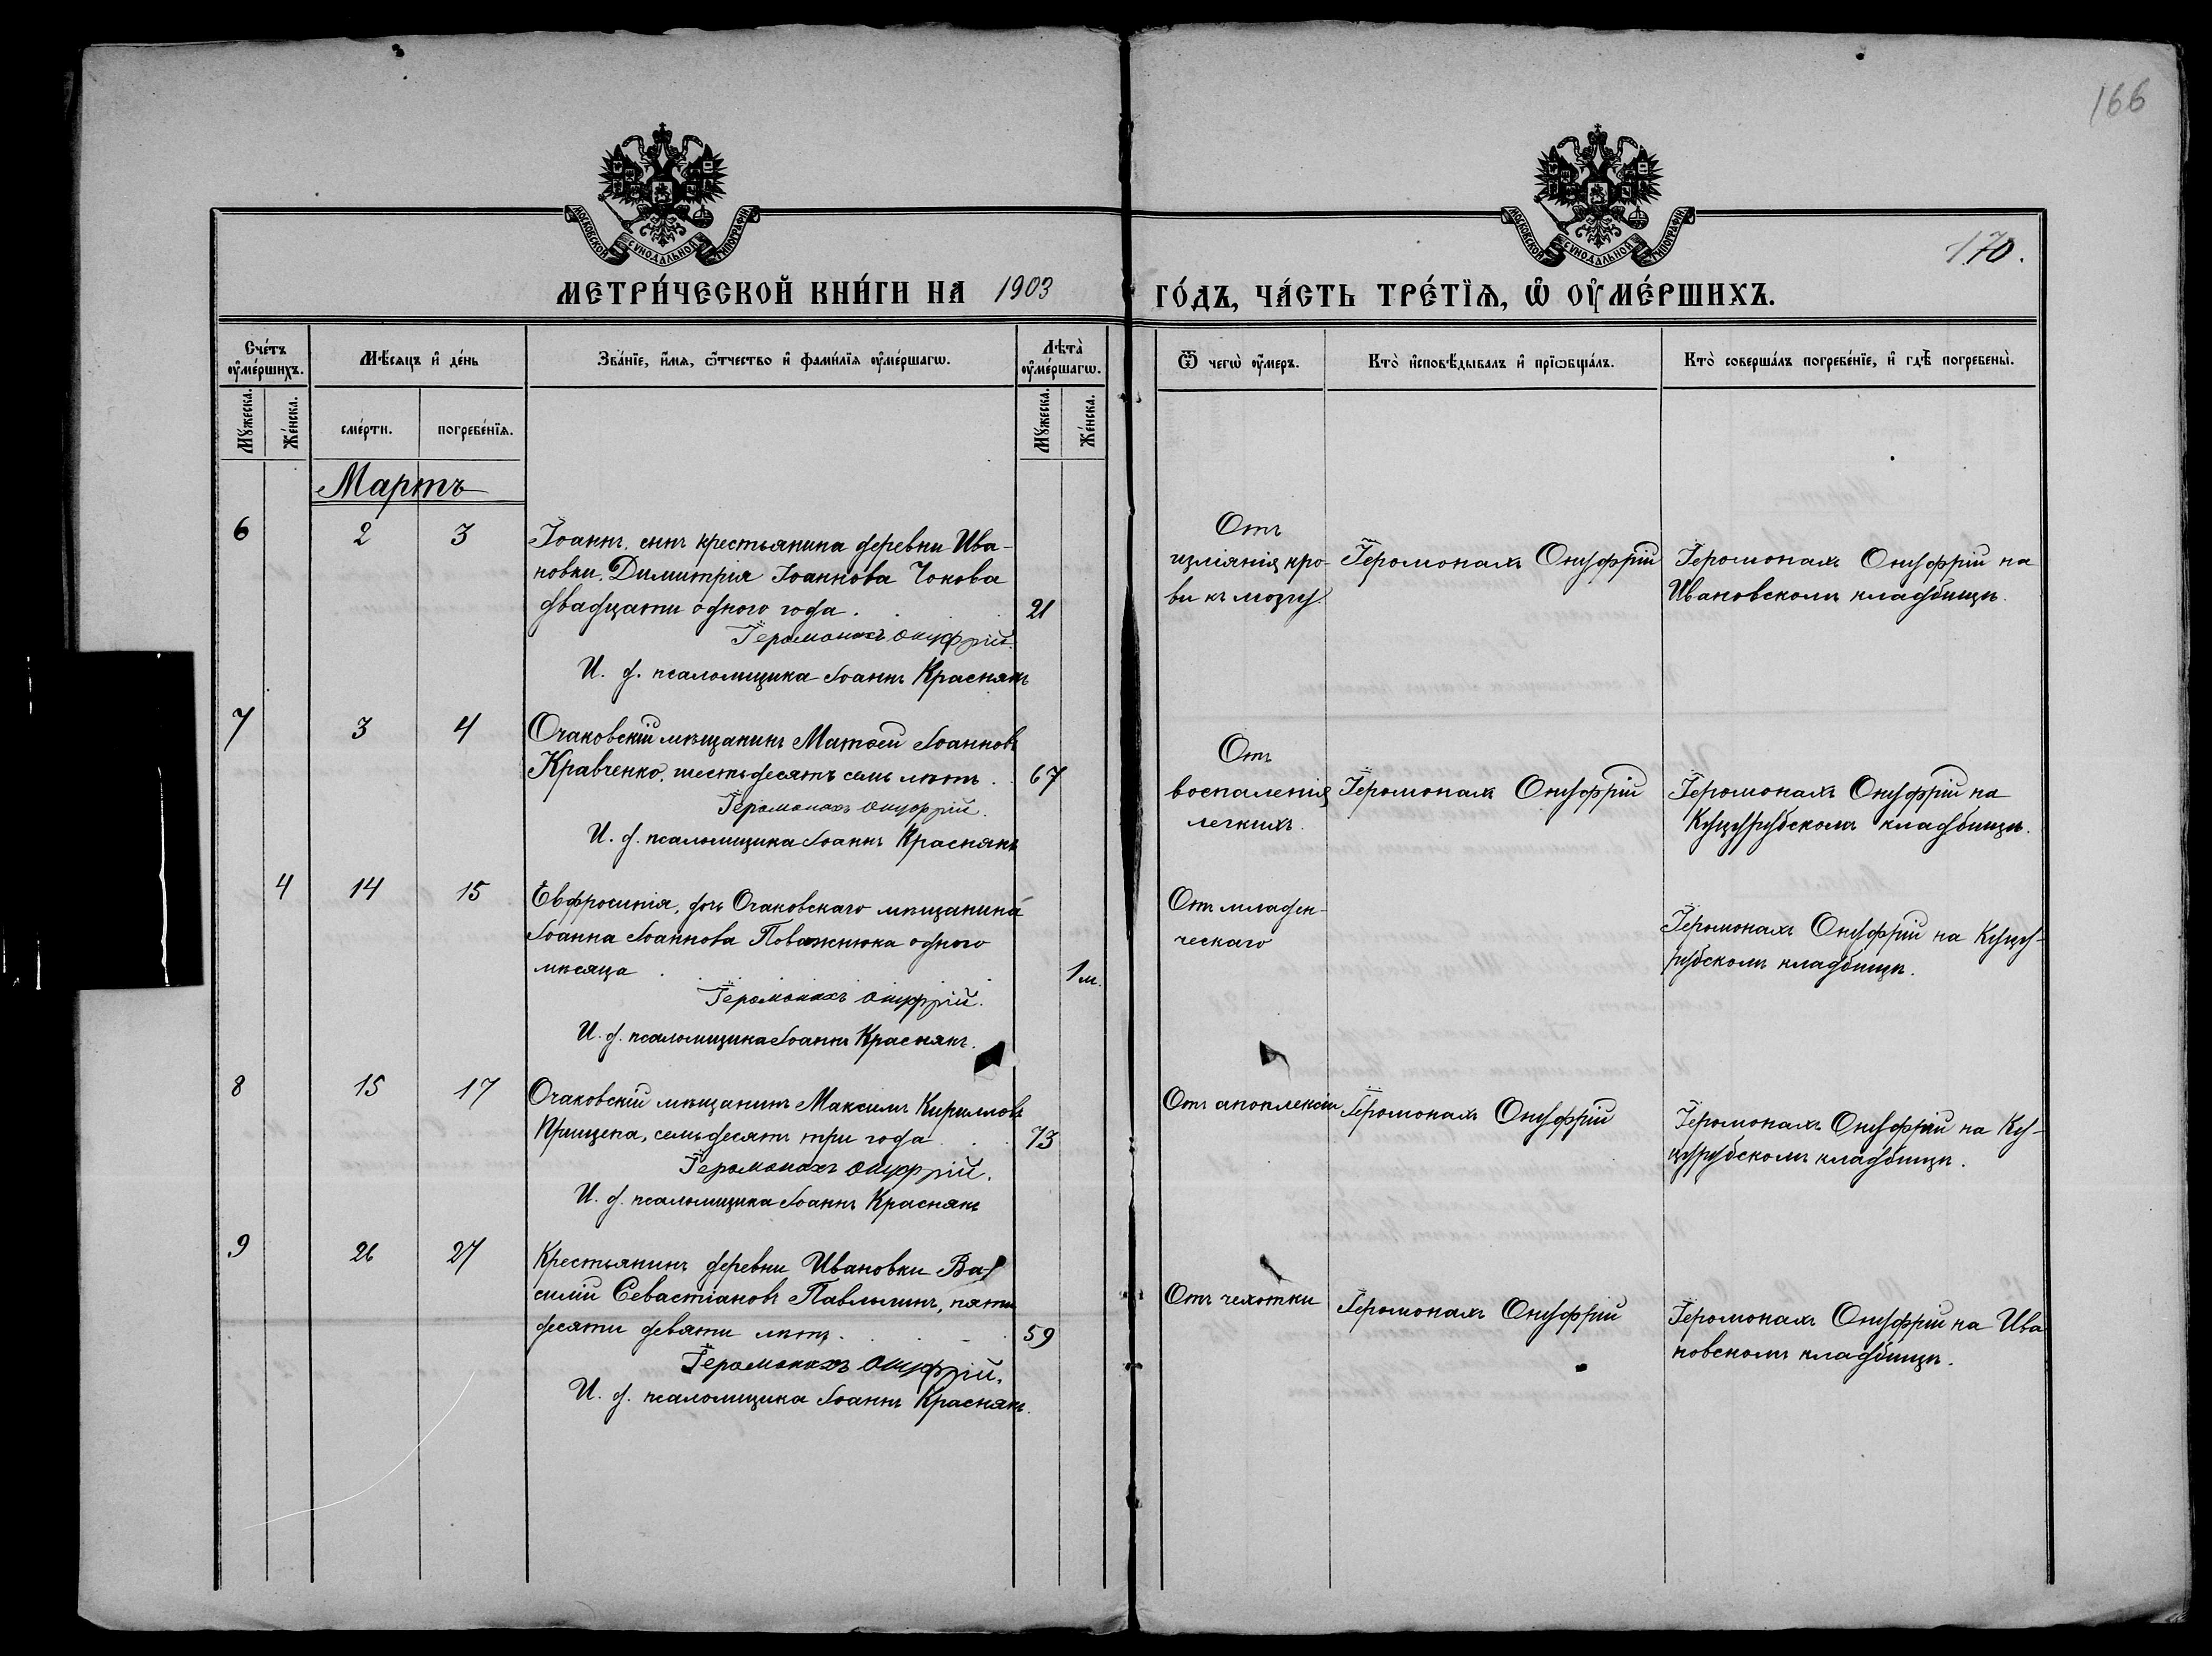 166
МОСКОВСКОЙ СУНОДАЛЬНОЙ ТИПОГРАФІИ
МОСКОВСКОЙ СУНОДАЛЬНОЙ ТИПОГРАФІИ
170.
МЕТРИ́ЧЕСКОЙ КНИ́ГИ НА 1903 ГО́ДЪ, ЧА́СТЬ ТРЕ́ТЇѦ, Ѡ҆ ОУ҆МЕ́РШИХЪ.
Сче́тъ оу҆ме́ршихъ.
Мѣ́сяцъ и҆ де́нь
Зва́нїе, и҆́мя, ѻ҆́тчество и҆ фами́лїя оу҆ме́ршагѡ.
Лѣта̀ оу҆ме́ршагѡ.
Ѿ чегѡ̀ оу҆́меръ.
Кто̀ и҆сповѣ́дывалъ и҆ прїѡбща́лъ.
Кто̀ соверша́лъ погребе́нїе, и҆ гдѣ̀ погребены̀.
Мꙋ́жеска. Же́нска. сме́рти. погребе́нїя. Мꙋ́жеска. Же́нска.
Мартъ
6 2 3 Іоаннъ, сынъ крестьянина деревни Ива-
новки, Димитрія Іоаннова Чокова
двадцати одного года. 21
Іеромонахъ Онуфрій.
И. д. псаломщика Іоаннъ Краснякъ
Отъ
изліянія кро-
ви къ мозгу.
Іеромонахъ Онуфрій
Іеромонахъ Онуфрій на
Ивановскомъ кладбищѣ.
7 3 4 Очаковскій мѣщанинъ Матѳей Іоанновъ
Кравченко, шестьдесятъ семь лѣтъ. 67
Іеромонахъ Онуфрій.
И. д. псаломщика Іоаннъ Краснякъ
Отъ
воспаленія
легкихъ.
Іеромонахъ Онуфрій
Іеромонахъ Онуфрій на
Куцурубскомъ кладбищѣ.
4 14 15 Евфросинія, дочь Очаковскаго мѣщанина
Іоанна Іоаннова Поважнюка одного
мѣсяца 1 м.
Іеромонахъ Онуфрій.
И. д. псаломщика Іоаннъ Краснякъ.
Отъ младен-
ческаго
Іеромонахъ Онуфрій на Куцу-
рубскомъ кладбищѣ.
8 15 17 Очаковскій мѣщанинъ Максимъ Кирилловъ
Прищепа, семьдесятъ три года 73
Іеромонахъ Онуфрій.
И. д. псаломщика Іоаннъ Краснякъ
Отъ апоплексіи
Іеромонахъ Онуфрій
Іеромонахъ Онуфрій на Ку-
цурубскомъ кладбищѣ.
9 26 27 Крестьянинъ деревни Ивановки Ва-
силій Севастіановъ Павлыгинъ, пяти
десяти девяти лѣтъ. 59
Іеромонахъ Онуфрій.
И. д. псаломщика Іоаннъ Краснякъ.
Отъ чехотки
Іеромонахъ Онуфрій
Іеромонахъ Онуфрій на Ива
новскомъ кладбищѣ.